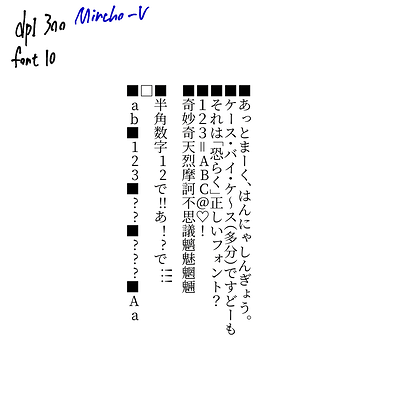 dpi 300 Mincho-V
font 10
■あっとまーく、はんにゃしんぎょう。
■ケース・バイ・ケ〜ス(多分)ですどーも
■それは「恐らく」正しいフォント?
■123=ABC@♡!
■奇妙奇天烈摩訶不思議魑魅魍魎
■半角数字12で!!あ!?で!!!
□
■ab■123■??■???■Aa